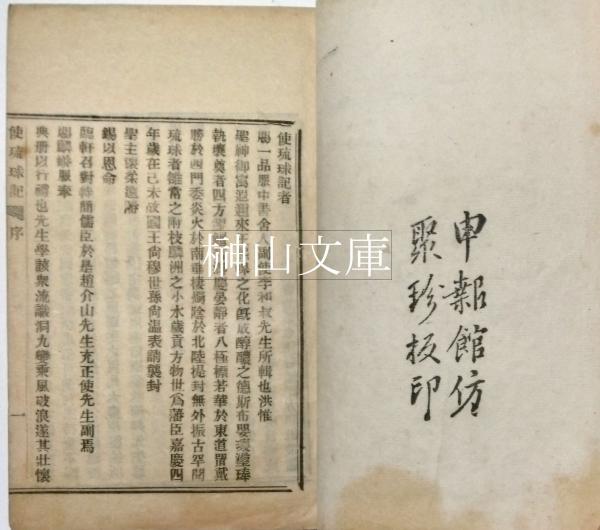 申報館仿
聚珍板印
使琉球記者
賜一品服中書舍人副使李和叔先生所輯也洪惟
聖神御寓
執壤奠者四方
慶晏靜者八極標若華於東道留戴
勝於西門委炎火於南垂棲燭陰於北陸提封無外振古罕聞
琉球者雖當之附枝麟洲之小水歲貢方物世爲藩臣嘉慶四
年歲在己未故國王尚穆世孫尚溫表請襲封
聖主懷柔遠
錫以恩命
臨軒召對特簡儒臣於是趙介山先生充正使先生副焉
賜麟蟒服奉
典册以行禮也先生學該衆流識洞九變乘風破浪遂其壯懷
使琉球記 序 一
榊山文庫